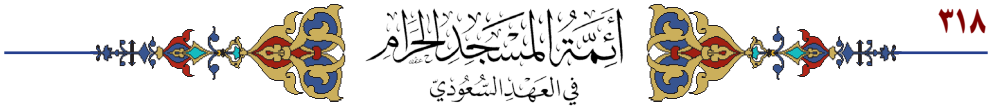 ٣١٨
أَئِمَّةُ المَسْجِدِ الحَرَامِ
فِي العَهْدِ السُّعُودِيّ